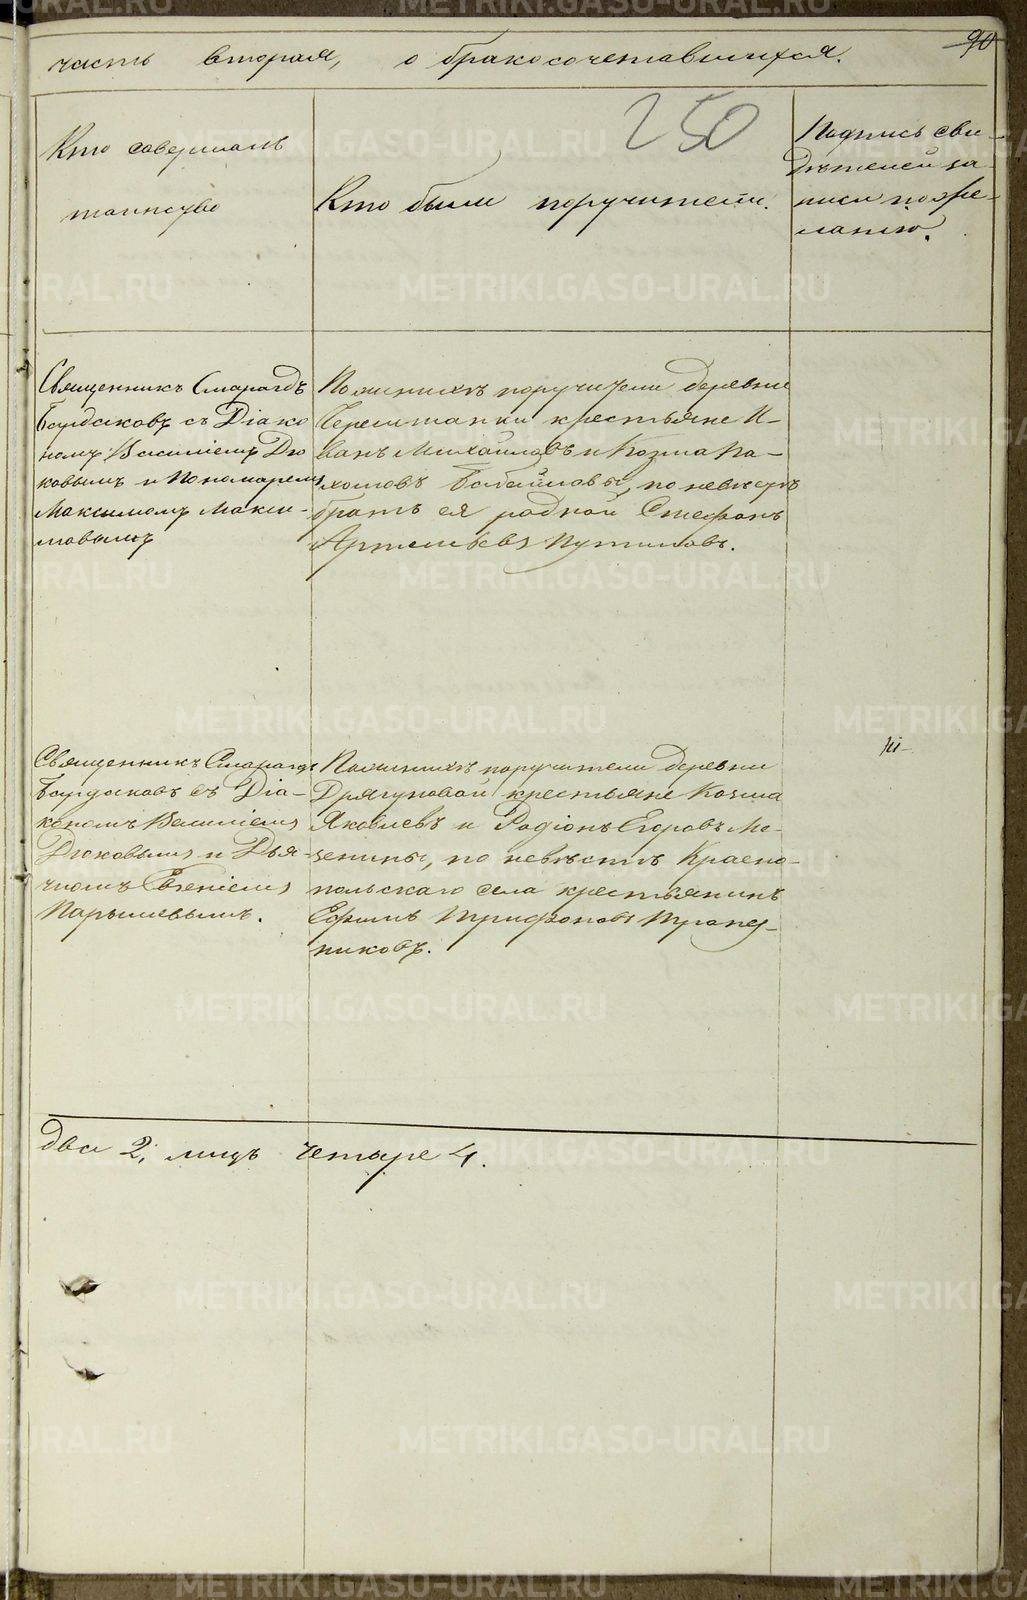 90
часть вторая, о бракосочетавшихся.
250
Кто совершалъ
таинство
Кто были поручители.
Подпись сви-
дѣтелей за-
писи по же-
ланію.
Священникъ Смарагдъ
Бурдаковъ съ Діако
номъ Василіемъ Дю
ковымъ и Пономаремъ
Максимомъ Макси-
мовымъ
По женихѣ поручители деревни
Черемшанки крестьяне И-
ванъ Михайловъ и Козма Па-
хомовъ по невѣстѣ
братъ ея родной Стефанъ
Артемьевъ Путиловъ.
Священникъ Смарагдъ
Бурдаковъ съ Діа-
кономъ Василіемъ
Дюковымъ и Дья-
чкомъ Евгеніемъ
Парышевымъ.
По женихѣ поручители деревни
Дрягуновой крестьяне Козма
Яковлевъ и Родіонъ Егоровъ Мо-
зенины, по невѣстѣ Красно-
польскаго села крестьянинъ
Ефимъ Трифоновъ Трапез-
никовъ.
два 2, лицъ четыре 4.
METRIKI.GASO-URAL.RU